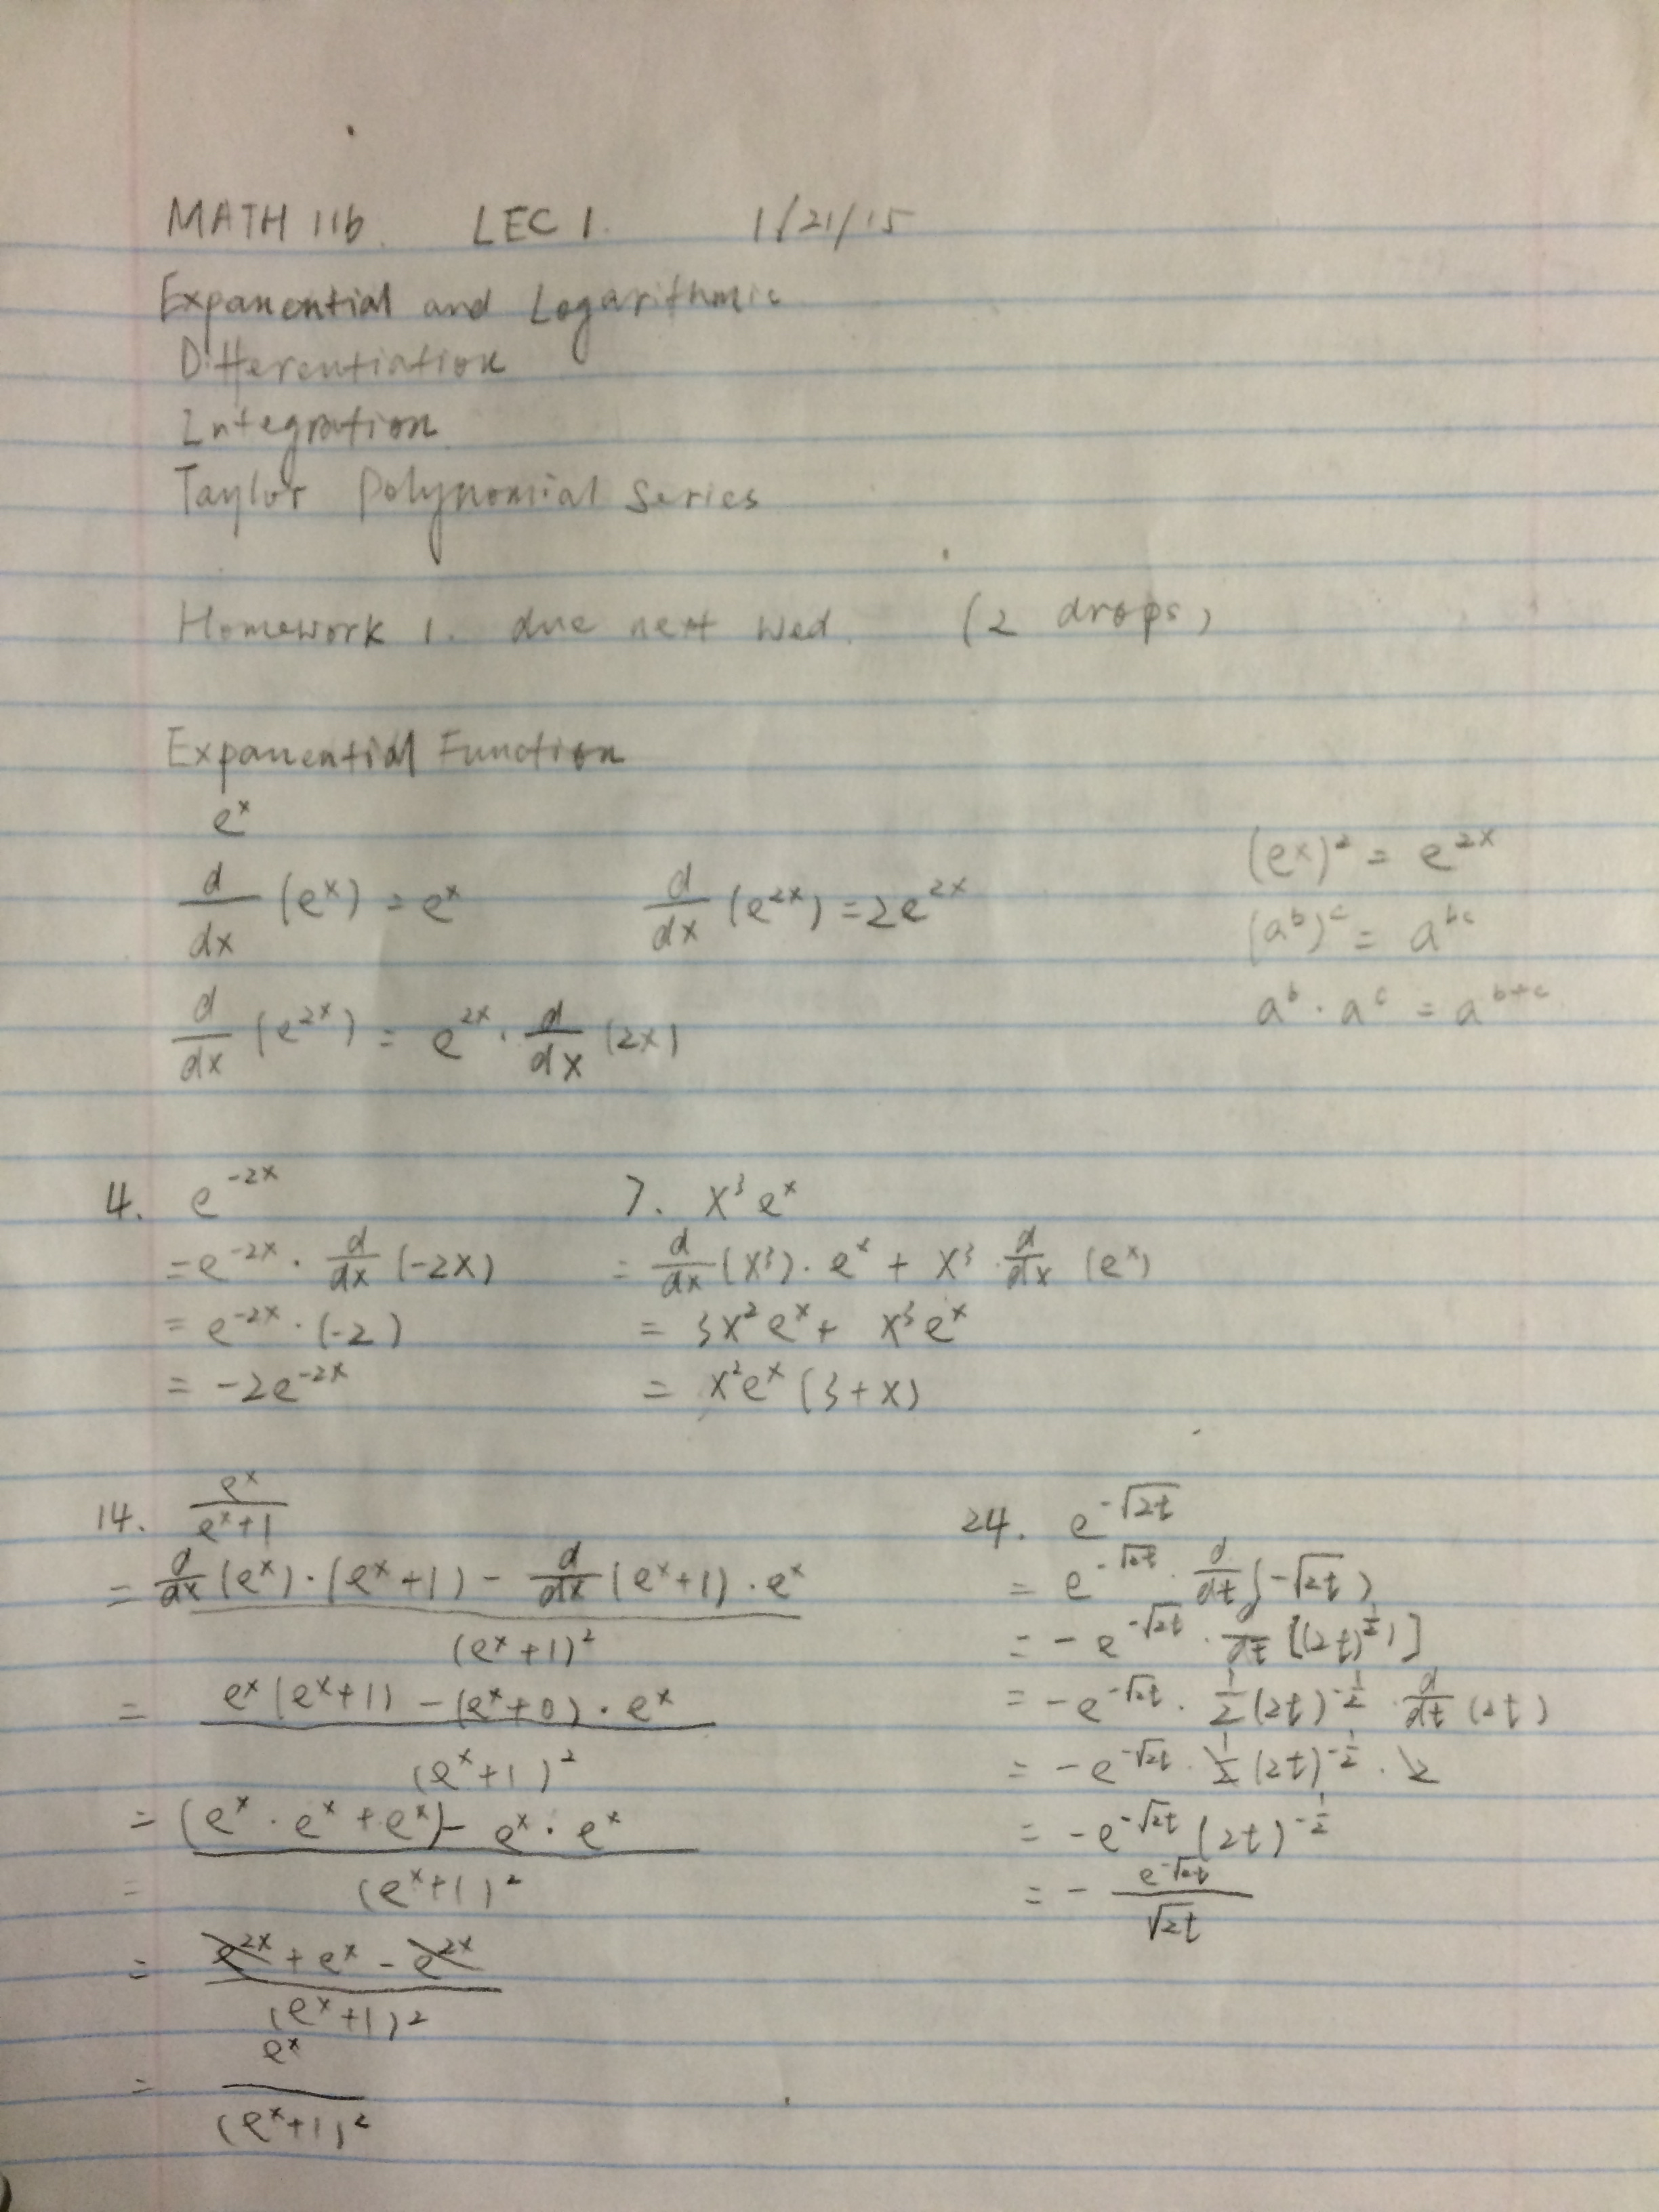 MATH 11b. LEC 1. 1/21/15
Expanential and Logarithmic
Differentiation
Integration
Taylor Polynomial Series
Homework 1. due next Wed. (2 drops)
Expanential Function
e^x
d/dx (e^x) = e^x    d/dx (e^{2x}) = 2e^{2x}
d/dx (e^{2x}) = e^{2x} · d/dx (2x)
(e^x)^2 = e^{2x}
(a^b)^c = a^{bc}
a^b · a^c = a^{b+c}
4. e^{-2x}
= e^{-2x} · d/dx (-2x)
= e^{-2x} · (-2)
= -2e^{-2x}
7. x^3 e^x
= d/dx (x^3) · e^x + x^3 · d/dx (e^x)
= 3x^2 e^x + x^3 e^x
= x^2 e^x (3+x)
14. e^x / (e^x+1)
= (d/dx (e^x) · (e^x+1) - d/dx (e^x+1) · e^x) / (e^x+1)^2
= (e^x (e^x+1) - (e^x+0) · e^x) / (e^x+1)^2
= ((e^x · e^x + e^x) - e^x · e^x) / (e^x+1)^2
= (e^{2x} + e^x - e^{2x}) / (e^x+1)^2
= e^x / (e^x+1)^2
24. e^{-√2t}
= e^{-√2t} · d/dt (-√2t)
= - e^{-√2t} · d/dt [(2t)^{1/2})]
= - e^{-√2t} · 1/2 (2t)^{-1/2} · d/dt (2t)
= - e^{-√2t} · 1/2 (2t)^{-1/2} · 2
= - e^{-√2t} (2t)^{-1/2}
= - e^{-√2t} / √2t